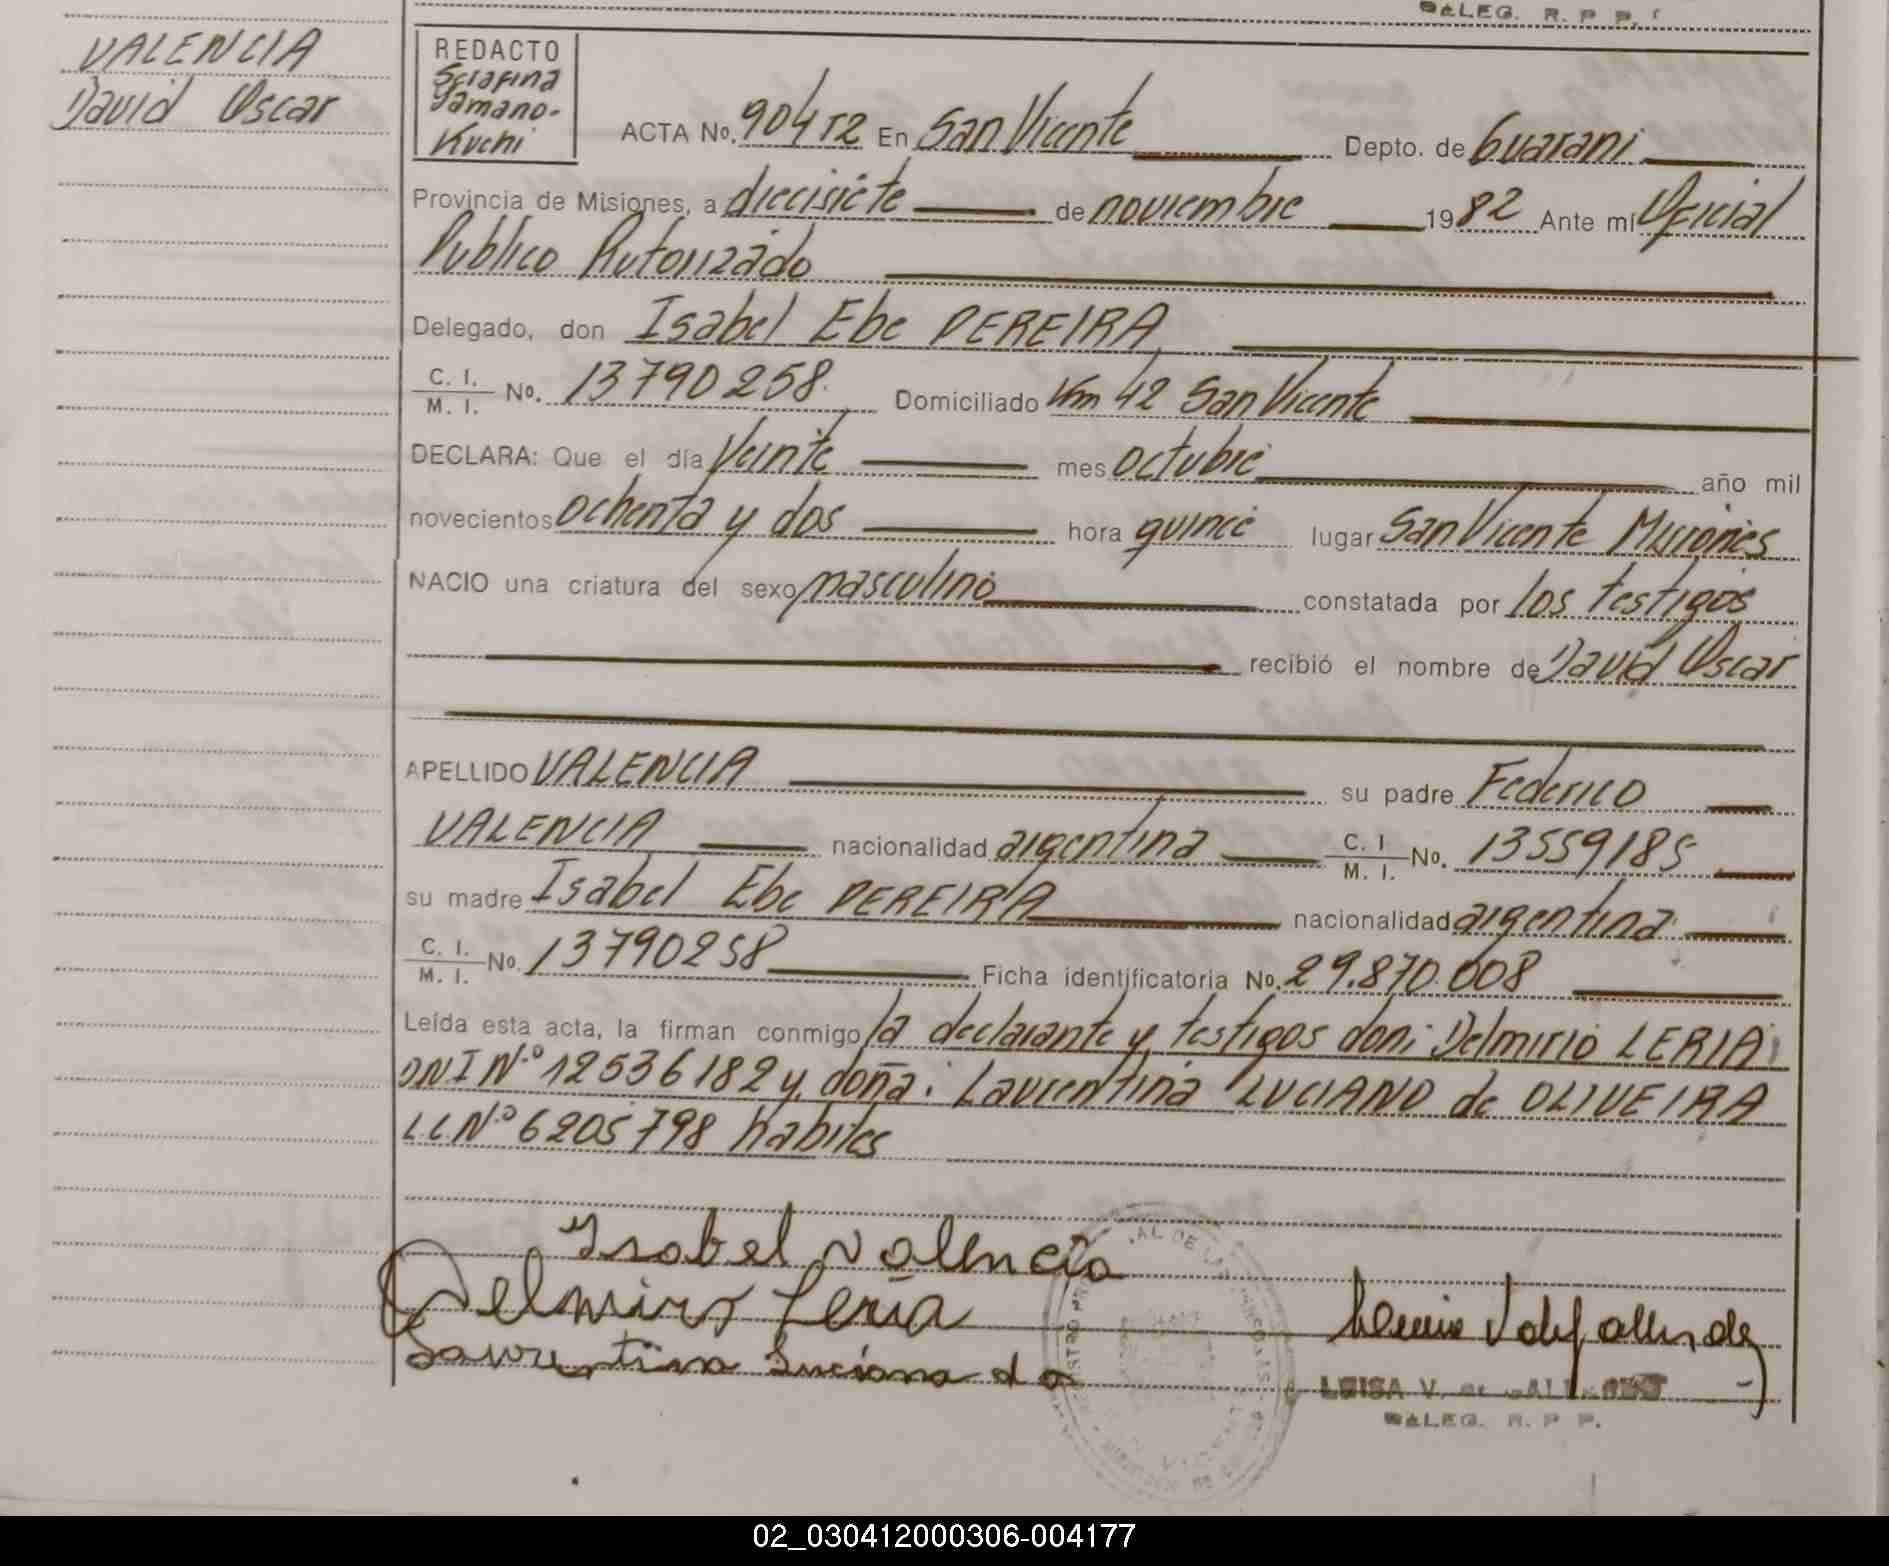 DALEG. R. P. P.
VALENCIA
David Oscar
REDACTO
Serafina
Yamano-
Kuchi
ACTA No. 904 T2 En San Vicente Depto. de Guarani
Provincia de Misiones, a diecisiete de noviembre 1982 Ante mí Oficial
Publico Autorizado
Delegado, don Isabel Ebe PEREIRA
C. I.
M. I. No. 13790258. Domiciliado Km 42 San Vicente
DECLARA: Que el día Veinte mes octubre año mil
novecientos ochenta y dos hora quince lugar San Vicente Misiones
NACIO una criatura del sexo masculino constatada por los testigos
recibió el nombre de David Oscar
APELLIDO VALENCIA su padre Federico
VALENCIA nacionalidad argentina C. I
M. I. No. 13559185
su madre Isabel Ebe PEREIRA nacionalidad argentina
C. I.
M. I. No. 13790258 Ficha identificatoria No. 29.870.008
Leída esta acta, la firman conmigo la declarante y testigos don: Delmirio LERIA
DNI N.º 12536182 y doña: Laurentina LUCIANO de OLIVEIRA
L.C.N.º 6205798 habiles
Isabel valencia
Delmiro Leria
Laurentina Luciana d o
LUISA V.
DALEG. R. P. P.
02_030412000306-004177